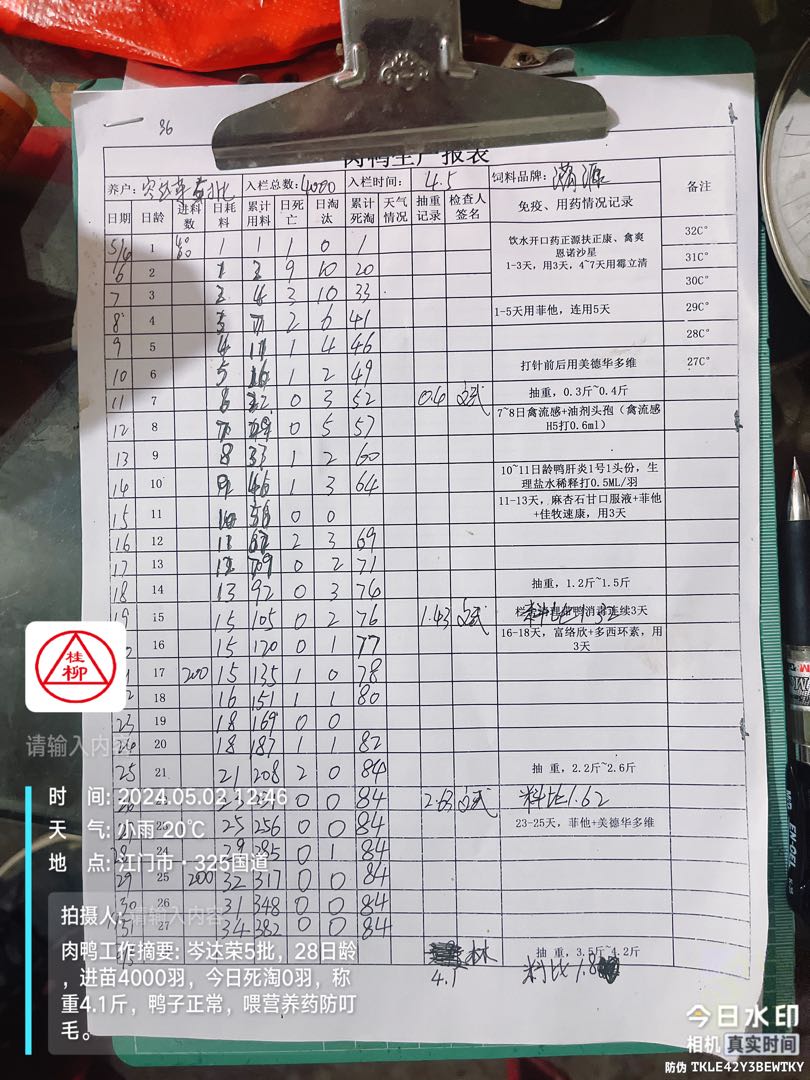 36
肉鸭生产报表
养户: 岑达荣5批 入栏总数: 4000 入栏时间: 4.5 饲料品牌: 备注
日期 日龄 进料数 日耗料 累计用料 日死亡 日淘汰 累计死淘 天气情况 抽重记录 检查人签名 免疫、用药情况记录
5/4 1 1 1 1 0 1 饮水开口药正源扶正康、禽爽 32C°
恩诺沙星
6 2 3 9 10 20 1-3天，用3天，4~7天用霉立清 31C°
7 3 4 3 10 33 30C°
8 4 7 2 6 41 1-5天用菲他，连用5天 29C°
9 5 4 11 1 4 46 28C°
10 6 5 16 1 2 49 打针前后用美德华多维 27C°
11 7 6 22 0 3 52 0.6 抽重，0.3斤~0.4斤
12 8 7 0 5 57 7~8日禽流感+油剂头孢（禽流感
H5打0.6ml）
13 9 8 33 1 2 60
14 10 9 46 1 3 64 10~11日龄鸭肝炎1号1头份，生
理盐水稀释打0.5ML/羽
15 11 10 0 0 11-13天，麻杏石甘口服液+菲他
+佳牧速康，用3天
16 12 11 2 3 69
17 13 12 0 2 71
18 14 13 92 0 3 76 抽重，1.2斤~1.5斤
19 15 15 105 0 2 76 1.43 料比1.32 连续3天
16 15 120 0 1 77 16-18天，富络欣+多西环素，用
3天
17 200 15 135 1 0 78
18 16 151 1 1 80
23 19 18 169 0 0
24 20 18 187 1 1 82
25 21 21 208 2 0 84 抽 重，2.2斤~2.6斤
23 0 0 84 2.63 料比1.62
25 256 0 0 84 23-25天，菲他+美德华多维
28 29 285 0 1 84
29 25 200 32 317 0 0 84
30 26 31 348 0 0 84
27 34 382 0 0 84
林 抽 重，3.5斤~4.2斤
4.1 料比1.8
桂柳
请输入内容
时 间: 2024.05.02 12:46
天 气: 小雨 20℃
地 点: 江门市·325国道
拍摄人: 请输入内容
肉鸭工作摘要: 岑达荣5批，28日龄
，进苗4000羽，今日死淘0羽，称
重4.1斤，鸭子正常，喂营养药防叮
毛。
今日水印
相机 真实时间
防伪 TKLE42Y3BEWTKY